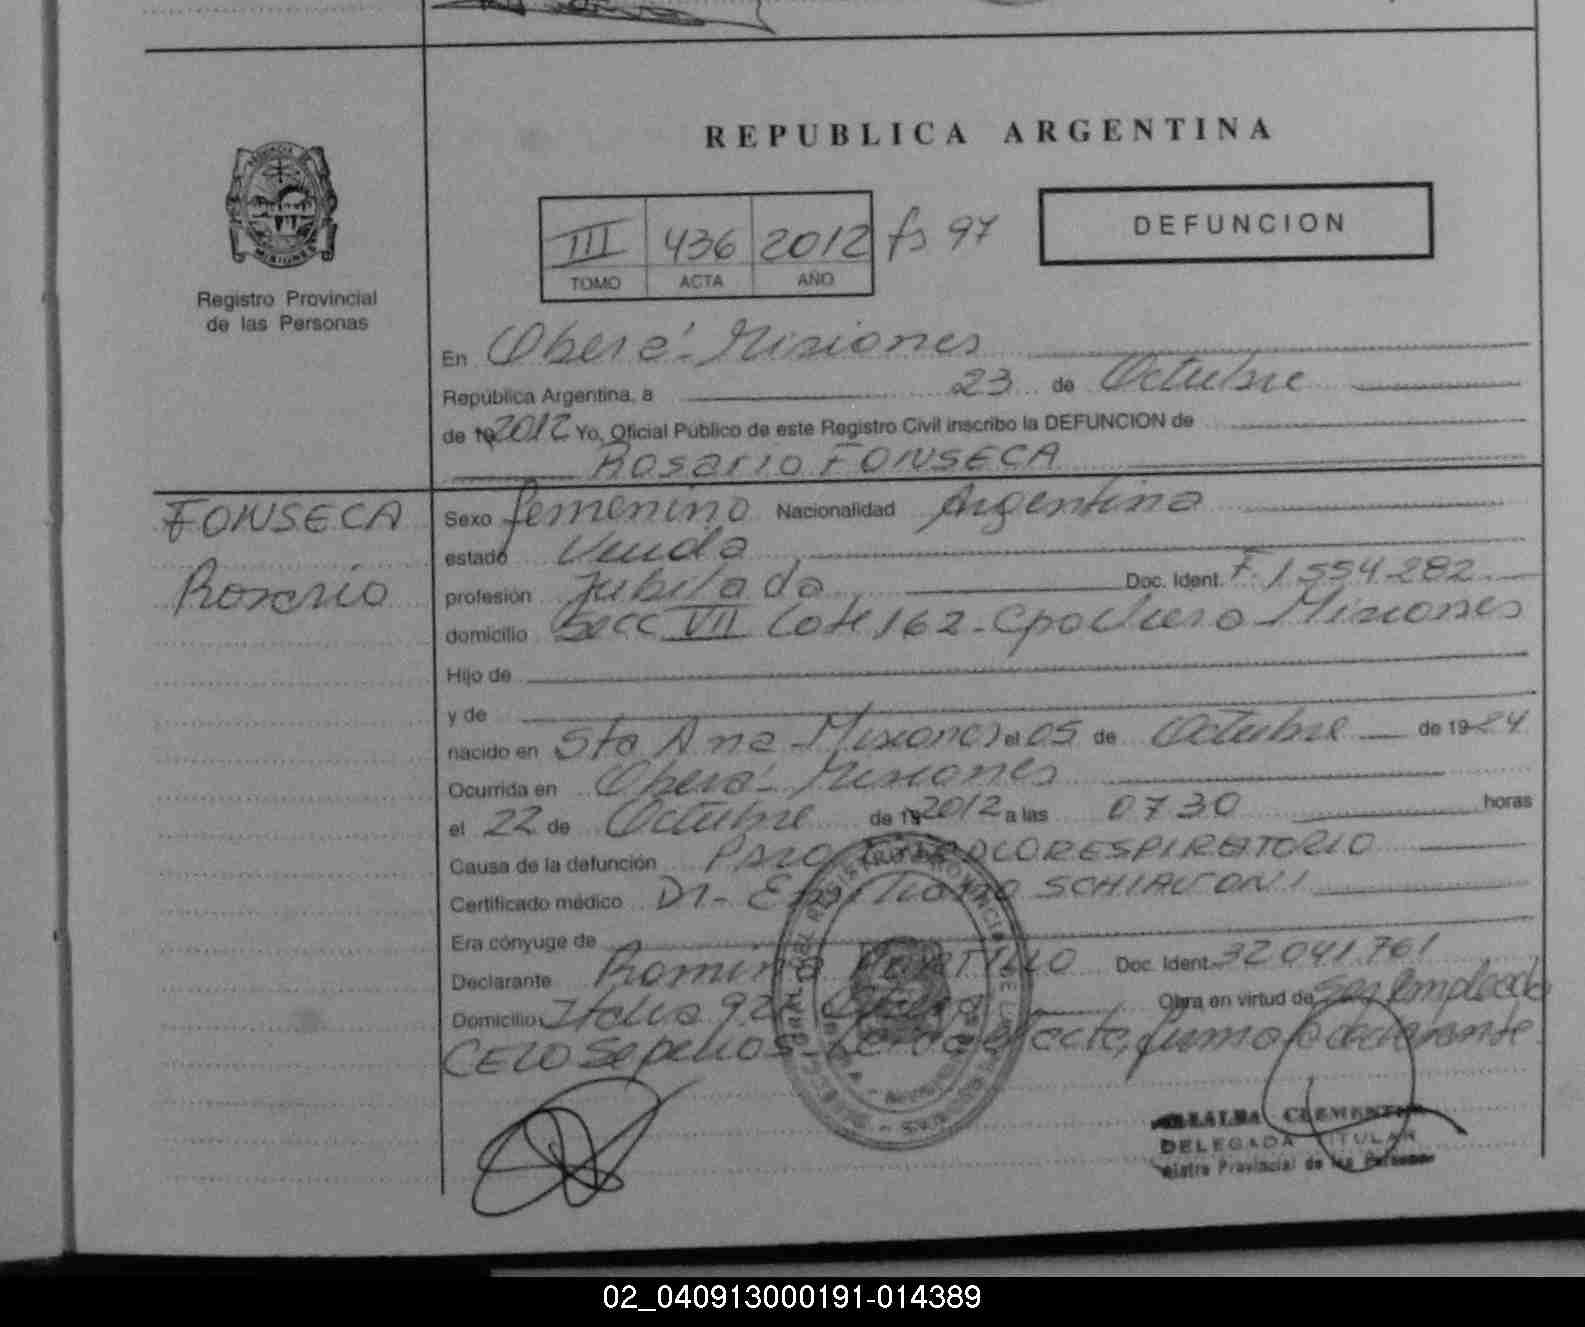 REPUBLICA ARGENTINA
PROVINCIA DE
MISIONES
Registro Provincial
de las Personas
III 436 2012 fs 97
TOMO ACTA AÑO
DEFUNCION
En Oberá - Misiones
República Argentina, a 23 de Octubre
de 19 2012 Yo, Oficial Público de este Registro Civil inscribo la DEFUNCION de
Rosario FONSECA
FONSECA
Rosario
Sexo femenino Nacionalidad Argentina
estado Viuda
profesión Jubilada Doc. Ident. F. 1.554.282
domicilio Secc VII Lote 162 - Misiones
Hijo de
y de
nacido en Sta Ana - Misiones el 05 de Octubre de 19 24
Ocurrida en Oberá - Misiones
el 22 de Octubre de 19 2012 a las 07 30 horas
Causa de la defunción PARO CARDIORESPIRATORIO
Certificado médico Dr - Emiliano SCHIAVONI
Era cónyuge de
Declarante Romina PORTILLO Doc. Ident. 32.041.761
Domicilio Italia Oberá Obra en virtud de ser Empleada
CELO Sepelios - Leída el acta, firma la declarante
CLEMENTIN
DELEGADA TITULAR
Provincial de las Personas
02_040913000191-014389